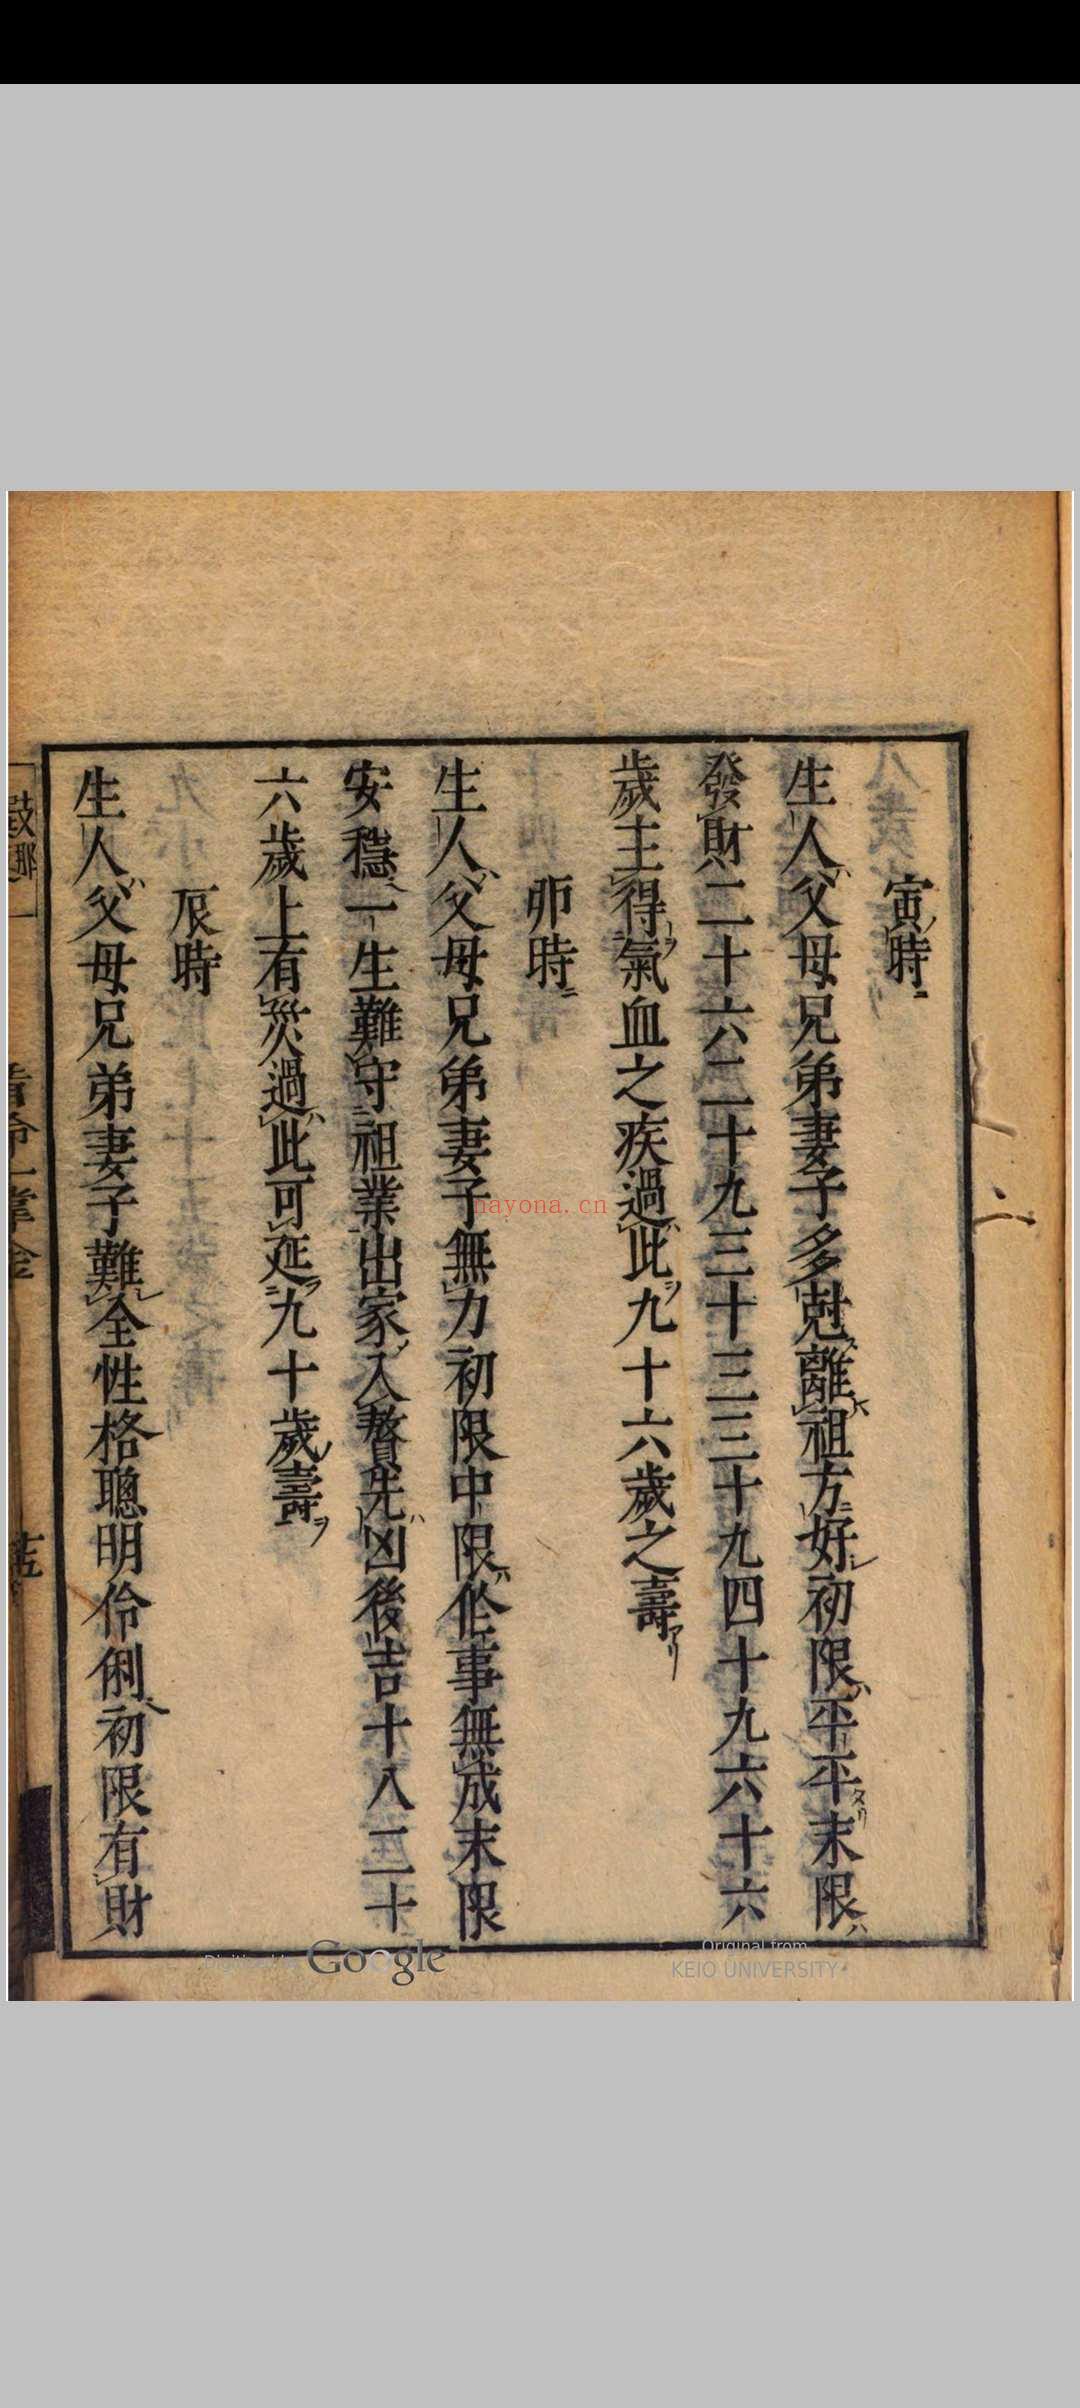 寅時ニ
生人ハ父母兄弟妻子多尅ス離レ祖方ニ好シ初限ハ平平タリ末限ハ
發財二十六二十九三十三三十九四十九六十六
歲主得ヲ氣血之疾過ハ此ヲ九十六歲之壽アリ
卯時ニ
生人ハ父母兄弟妻子無力初限中限ハ作事無成末限
安穩一生難守祖業出家入贅先ハ凶後吉十八二十
六歲上有災過ハ此可延ヲ九十歲ノ壽ヲ
辰時
生人ハ父母兄弟妻子難全性格聰明伶俐初限有財
Google
Original from
KEIO UNIVERSITY
nayona.cn